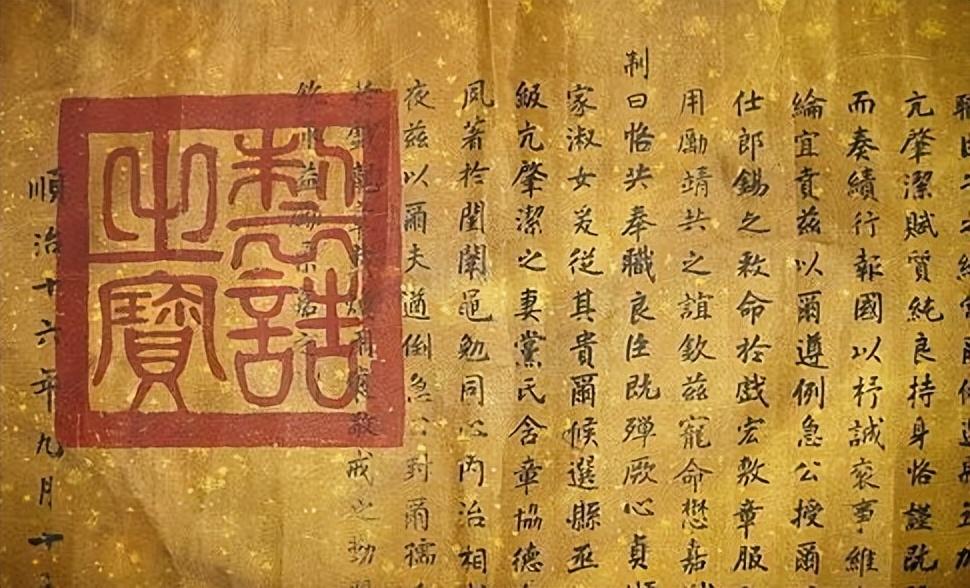 亢肇潔賦質純良持身恪謹既
而奏績行報國以抒誠褎事維
綸宜賁茲以爾遵例急公授爾
仕郎錫之敕命於戲宏敷章服
用勵靖共之誼欽茲寵命懋嘉
制曰恪共奉職良臣既殫厥心貞順
家淑女爰從其貴爾候選縣丞
級亢肇潔之妻黨氏含章協德
夙著於閨闈黽勉同心內治相
夜茲以爾夫遒倒急公對爾孺
敬戒之勤
順治十六年九月十
制誥
之寶